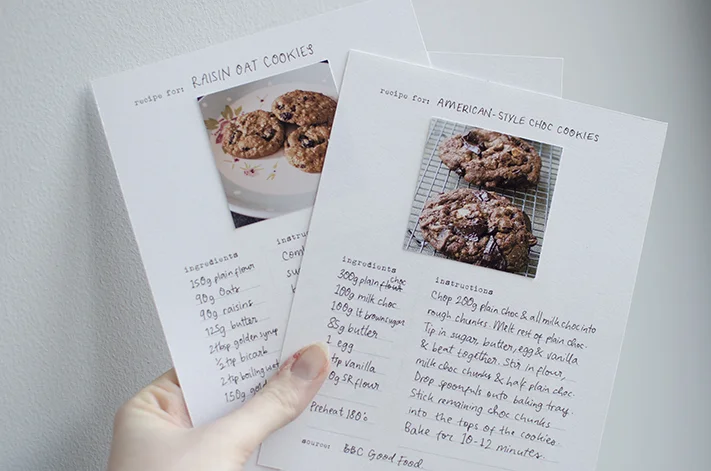 recipe for: RAISIN OAT COOKIES
ingredients
150g plain flour
90g Oats
90g raisins
125g butter
2tbsp golden syrup
½ tsp bicarb
2 tsp boiling
150g
recipe for: AMERICAN-STYLE CHOC COOKIES
ingredients
300g plain flour choc
100g milk choc
100g lt brown sugar
85g butter
1 egg
tsp vanilla
0g SR flour
Preheat 180°c
source: BBC Good Food
instructions
Chop 200g plain choc & all milk choc into
rough chunks. Melt rest of plain choc.
Tip in sugar, butter, egg & vanilla
& beat together. Stir in flour,
milk choc chunks & half plain choc.
Drop spoonfuls onto baking tray.
Stick remaining choc chunks
into the tops of the cookies.
Bake for 10-12 minutes.